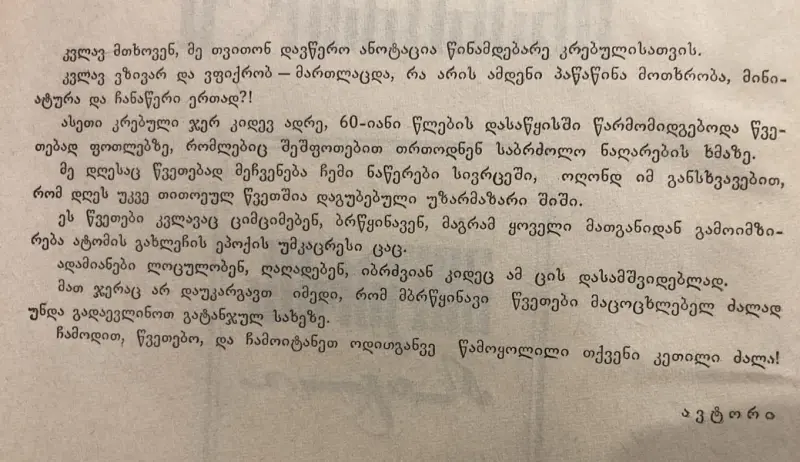 კვლავ მთხოვენ, მე თვითონ დავწერო ანოტაცია წინამდებარე კრებულისათვის.
კვლავ ვზივარ და ვფიქრობ — მართლაცდა, რა არის ამდენი პაწაწინა მოთხრობა, მინი-
ატურა და ჩანაწერი ერთად?!
ასეთი კრებული ჯერ კიდევ ადრე, 60-იანი წლების დასაწყისში წარმომიდგებოდა წვე-
თებად ფოთლებზე, რომლებიც შეშფოთებით თრთოდნენ საბრძოლო ნაღარების ხმაზე.
მე დღესაც წვეთებად მეჩვენება ჩემი ნაწერები სივრცეში, ოღონდ იმ განსხვავებით,
რომ დღეს უკვე თითოეულ წვეთშია დაგუბებული უზარმაზარი შიში.
ეს წვეთები კვლავაც ციმციმებენ, ბრწყინავენ, მაგრამ ყოველი მათგანიდან გამოიმზი-
რება ატომის გახლეჩის ეპოქის უმკაცრესი ცაც.
ადამიანები ლოცულობენ, ღაღადებენ, იბრძვიან კიდეც ამ ცის დასამშვიდებლად.
მათ ჯერაც არ დაუკარგავთ იმედი, რომ მბრწყინავი წვეთები მაცოცხლებელ ძალად
უნდა გადაევლინოთ გატანჯულ სახეზე.
ჩამოდით, წვეთებო, და ჩამოიტანეთ ოდითგანვე წამოყოლილი თქვენი კეთილი ძალა!
ავტორი